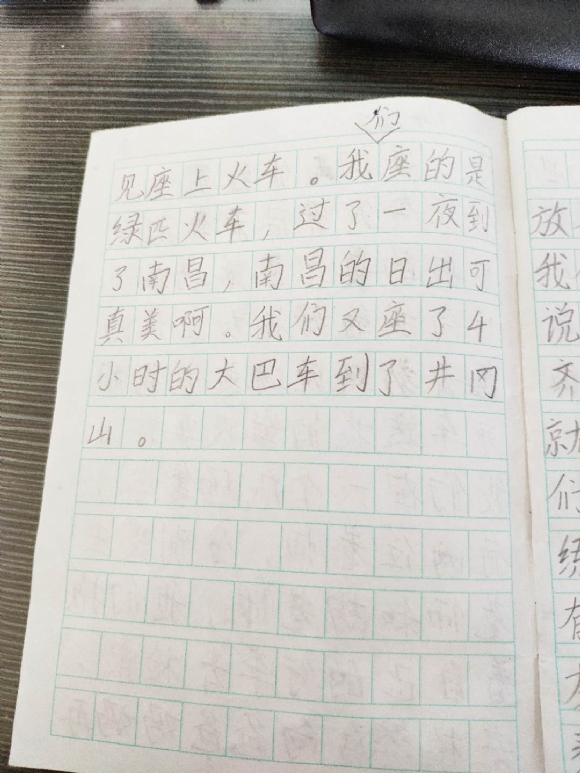 们
见座上火车。我座的是
绿匹火车，过了一夜到
了南昌，南昌的日出可
真美啊。我们又座了4
小时的大巴车到了井冈
山。
放
我
说
齐
就
们